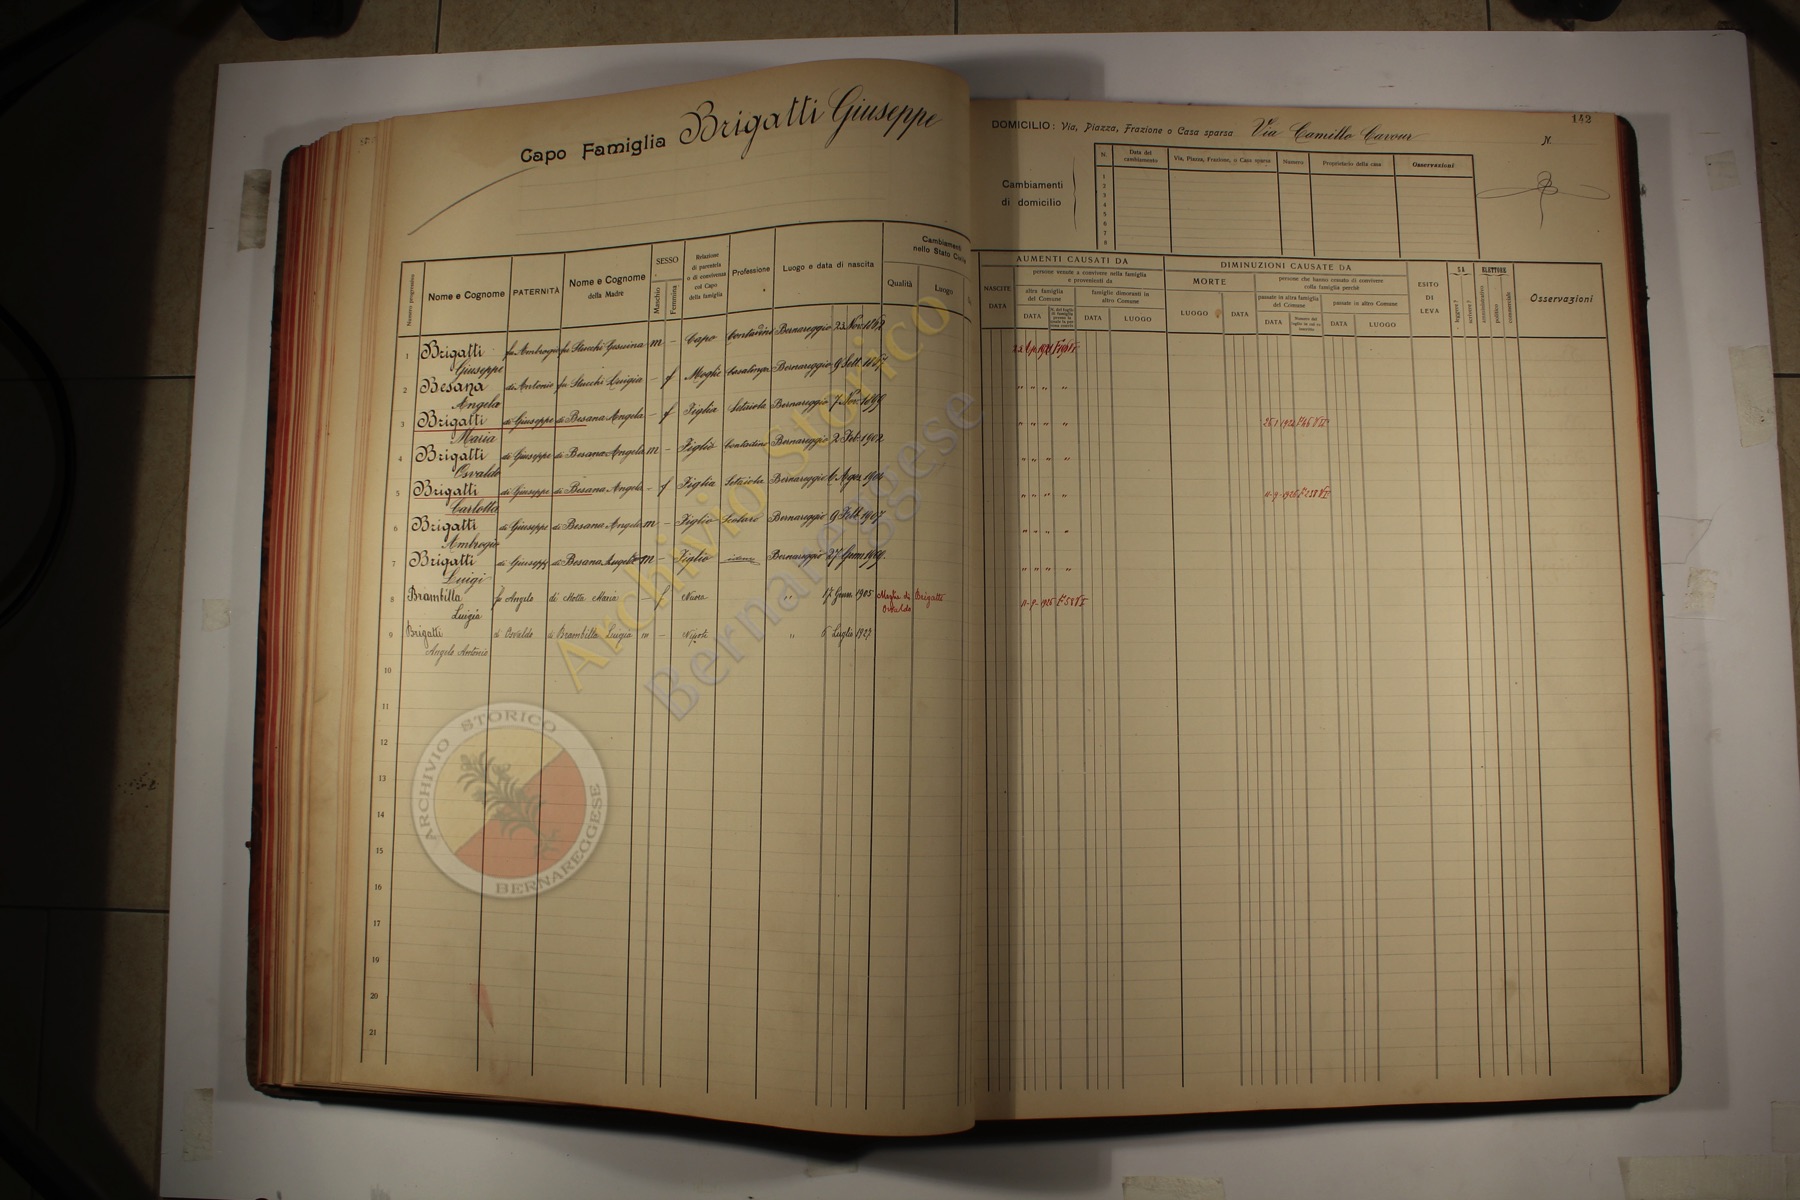 Capo Famiglia Brigatti Giuseppe
142
DOMICILIO: Via, Piazza, Frazione o Casa sparsa Via Camillo Cavour N.
Cambiamenti di domicilio
N. Data del cambiamento Via, Piazza, Frazione, o Casa sparsa Numero Proprietario della casa Osservazioni
1
2
3
4
5
6
7
8
Numero progressivo Nome e Cognome PATERNITÀ Nome e Cognome della Madre SESSO Maschio Femmina Relazione di parentela o di convivenza col Capo della famiglia Professione Luogo e data di nascita Cambiamenti nello Stato Civile Qualità Luogo
NASCITE DATA AUMENTI CAUSATI DA persone venute a convivere nella famiglia e provenienti da altra famiglia del Comune DATA famiglie dimoranti in altro Comune DATA LUOGO
DIMINUZIONI CAUSATE DA MORTE LUOGO DATA persone che hanno cessato di convivere colla famiglia perchè passate in altra famiglia del Comune DATA passate in altro Comune DATA LUOGO
ESITO DI LEVA SA leggere? scrivere? ELETTORE amministrativo politico commerciale Osservazioni
1 Brigatti Giuseppe fu Ambrogio fu Stucchi Gesuina m - Capo Contadino Bernareggio 23 Nov.
2 Besana Angela di Antonio fu Stucchi Luigia - f Moglie Casalinga Bernareggio 9 Sett.
" " " "
3 Brigatti Maria di Giuseppe di Besana Angela - f Figlia Setaiola Bernareggio 7 Nov. 1899
" " " "
4 Brigatti Osvaldo di Giuseppe di Besana Angela m - Figlio Contadino Bernareggio 2 Feb. 1902
" " " "
5 Brigatti Carlotta di Giuseppe di Besana Angela - f Figlia Setaiola Bernareggio 6 Agos. 1904
" " " "
6 Brigatti Ambrogio di Giuseppe di Besana Angela m - Figlio Scolaro Bernareggio 9 1907
" " " "
7 Brigatti Luigi di Giuseppe di Besana Angela m - Figlio idem Bernareggio 27 Genn. 1909
" " " "
8 Brambilla Luigia fu Angelo di Motta Maria - f Nuora " 17 Genn. 1905 Moglie di Brigatti Osvaldo
9 Brigatti Angelo Antonio di Osvaldo di Brambilla Luigia m - Nipote " 6 Luglio 1927
10
11
12
13
14
15
16
17
18
19
20
21
Archivio Storico
Bernareggese
ARCHIVIO STORICO
BERNAREGGESE